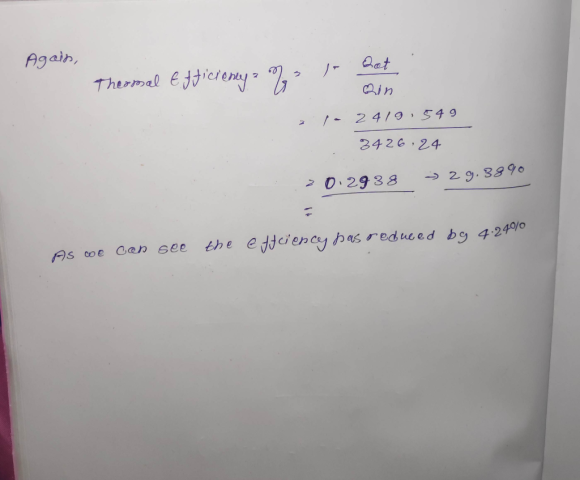 Again,
Thermal Efficiency = η = 1 - Qot / Qin
= 1 - 2419.549 / 3426.24
= 0.2938 → 29.38%
=
As we can see the efficiency has reduced by 4.24%